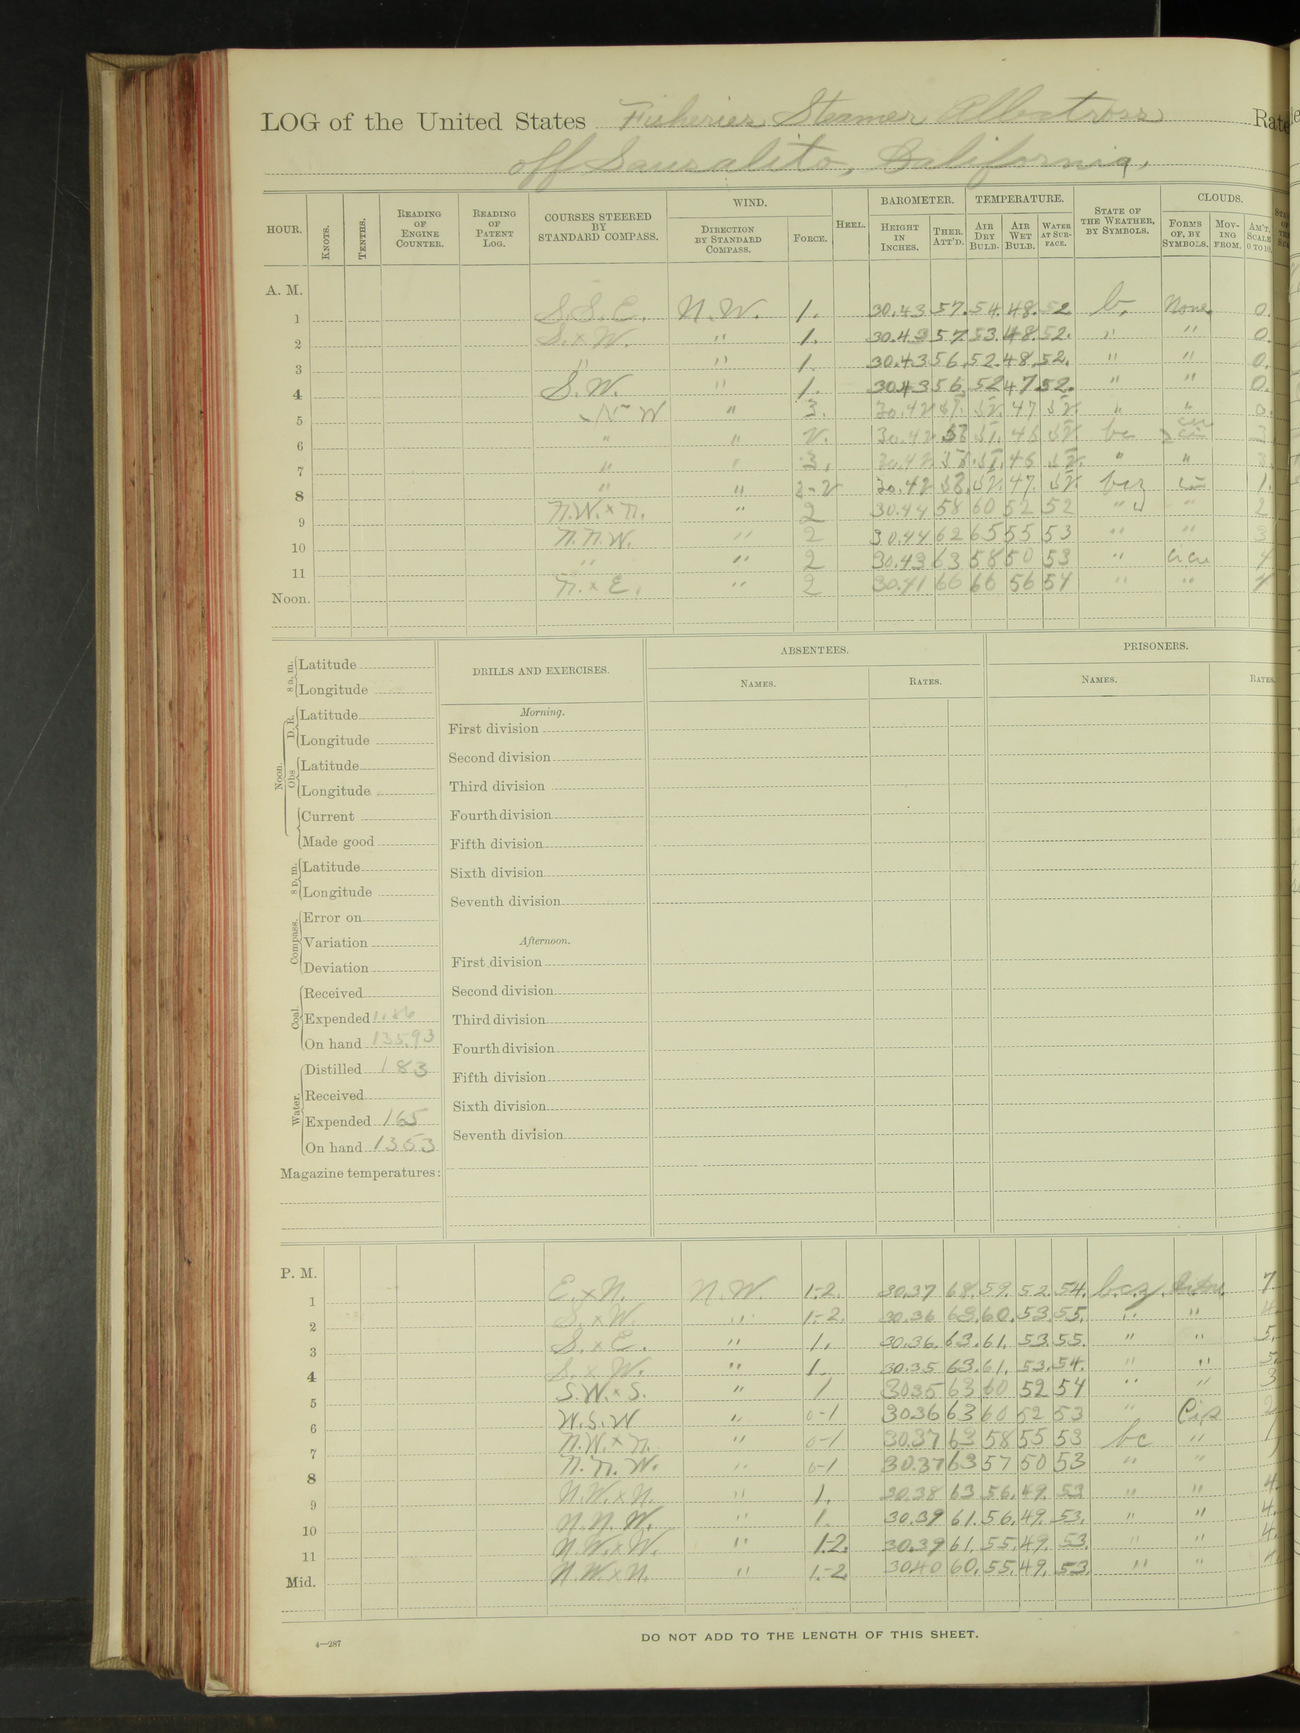 LOG of the United States Fisheries Steamer Albatross Rate
off Sausalito, California,
HOUR. KNOTS. TENTHS. READING OF ENGINE COUNTER. READING OF PATENT LOG. COURSES STEERED BY STANDARD COMPASS. WIND. DIRECTION BY STANDARD COMPASS. FORCE. HEEL. BAROMETER. HEIGHT IN INCHES. THER. ATT'D. TEMPERATURE. AIR DRY BULB. AIR WET BULB. WATER AT SURFACE. STATE OF THE WEATHER, BY SYMBOLS. CLOUDS. FORMS OF, BY SYMBOLS. MOVING FROM. AM'T, SCALE 0 TO 10.
A. M.
1 S.S.E. N.W. 1. 30.43 57. 54. 48. 52 b. None. 0.
2 S.xW. " 1. 30.43 57. 53. 48. 52. " " 0.
3 " " 1. 30.43 56. 52. 48. 52. " " 0.
4 S.W. " 1. 30.43 56. 52 47 52. " " 0.
5 W " 3. 30.42 57. 52. 47 52 " " 0.
6 " " 2. 30.42 58 51. 46 52 bc 3
7 " " 3. 30.42 58. 51. 46 52. " " 3
8 " " 2-2 30.42 58. 52. 47. 52 bcz 1.
9 N.W.xN. " 2 30.44 58 60 52 52 " " 2
10 N.N.W. " 2 30.44 62 65 55 53 " " 3
11 " " 2 30.43 63 58 50 53 " ci cu 4
Noon. N.xE. " 2 30.41 66 66 56 54 " " 4
8 a. m. Latitude
Longitude
Noon. D. R. Latitude
Longitude
Obs Latitude
Longitude
Current
Made good
8 p. m. Latitude
Longitude
Compass. Error on
Variation
Deviation
Coal. Received
Expended 1.86
On hand 135.93
Water. Distilled 183
Received
Expended 165
On hand 1353
Magazine temperatures:
DRILLS AND EXERCISES.
Morning.
First division
Second division
Third division
Fourth division
Fifth division
Sixth division
Seventh division
Afternoon.
First division
Second division
Third division
Fourth division
Fifth division
Sixth division
Seventh division
ABSENTEES.
NAMES. RATES.
PRISONERS.
NAMES. RATES.
P. M.
1 E.xN. N.W. 1-2. 30.37 68. 59. 52. 54. b.c.z. 7
2 S.xW. " 1-2. 30.36 63. 60. 53. 55. " " 4.
3 S.xE. " 1. 30.36. 63. 61. 53. 55. " " 5.
4 S.xW. " 1. 30.35 63. 61. 53. 54. " " 5.
5 S.W.xS. " 1 30.35 63 60 52 54 " " 3
6 W.S.W " 0-1 30.36 63 60 52 53 " 2
7 N.W.xN. " 0-1 30.37 63 58 55 53 bc " 1
8 N.N.W. " 0-1 30.37 63 57 50 53 " " 1
9 N.W.xN. " 1. 30.38 63 56. 49. 53 " " 4.
10 N.N.W. " 1. 30.39 61. 56. 49. 53. " " 4.
11 N.W.xW. " 1-2. 30.39 61. 55. 49. 53. " " 4.
Mid. N.W.xN. " 1-2 30.40 60. 55. 49. 53. " " 4.
4—287
DO NOT ADD TO THE LENGTH OF THIS SHEET.